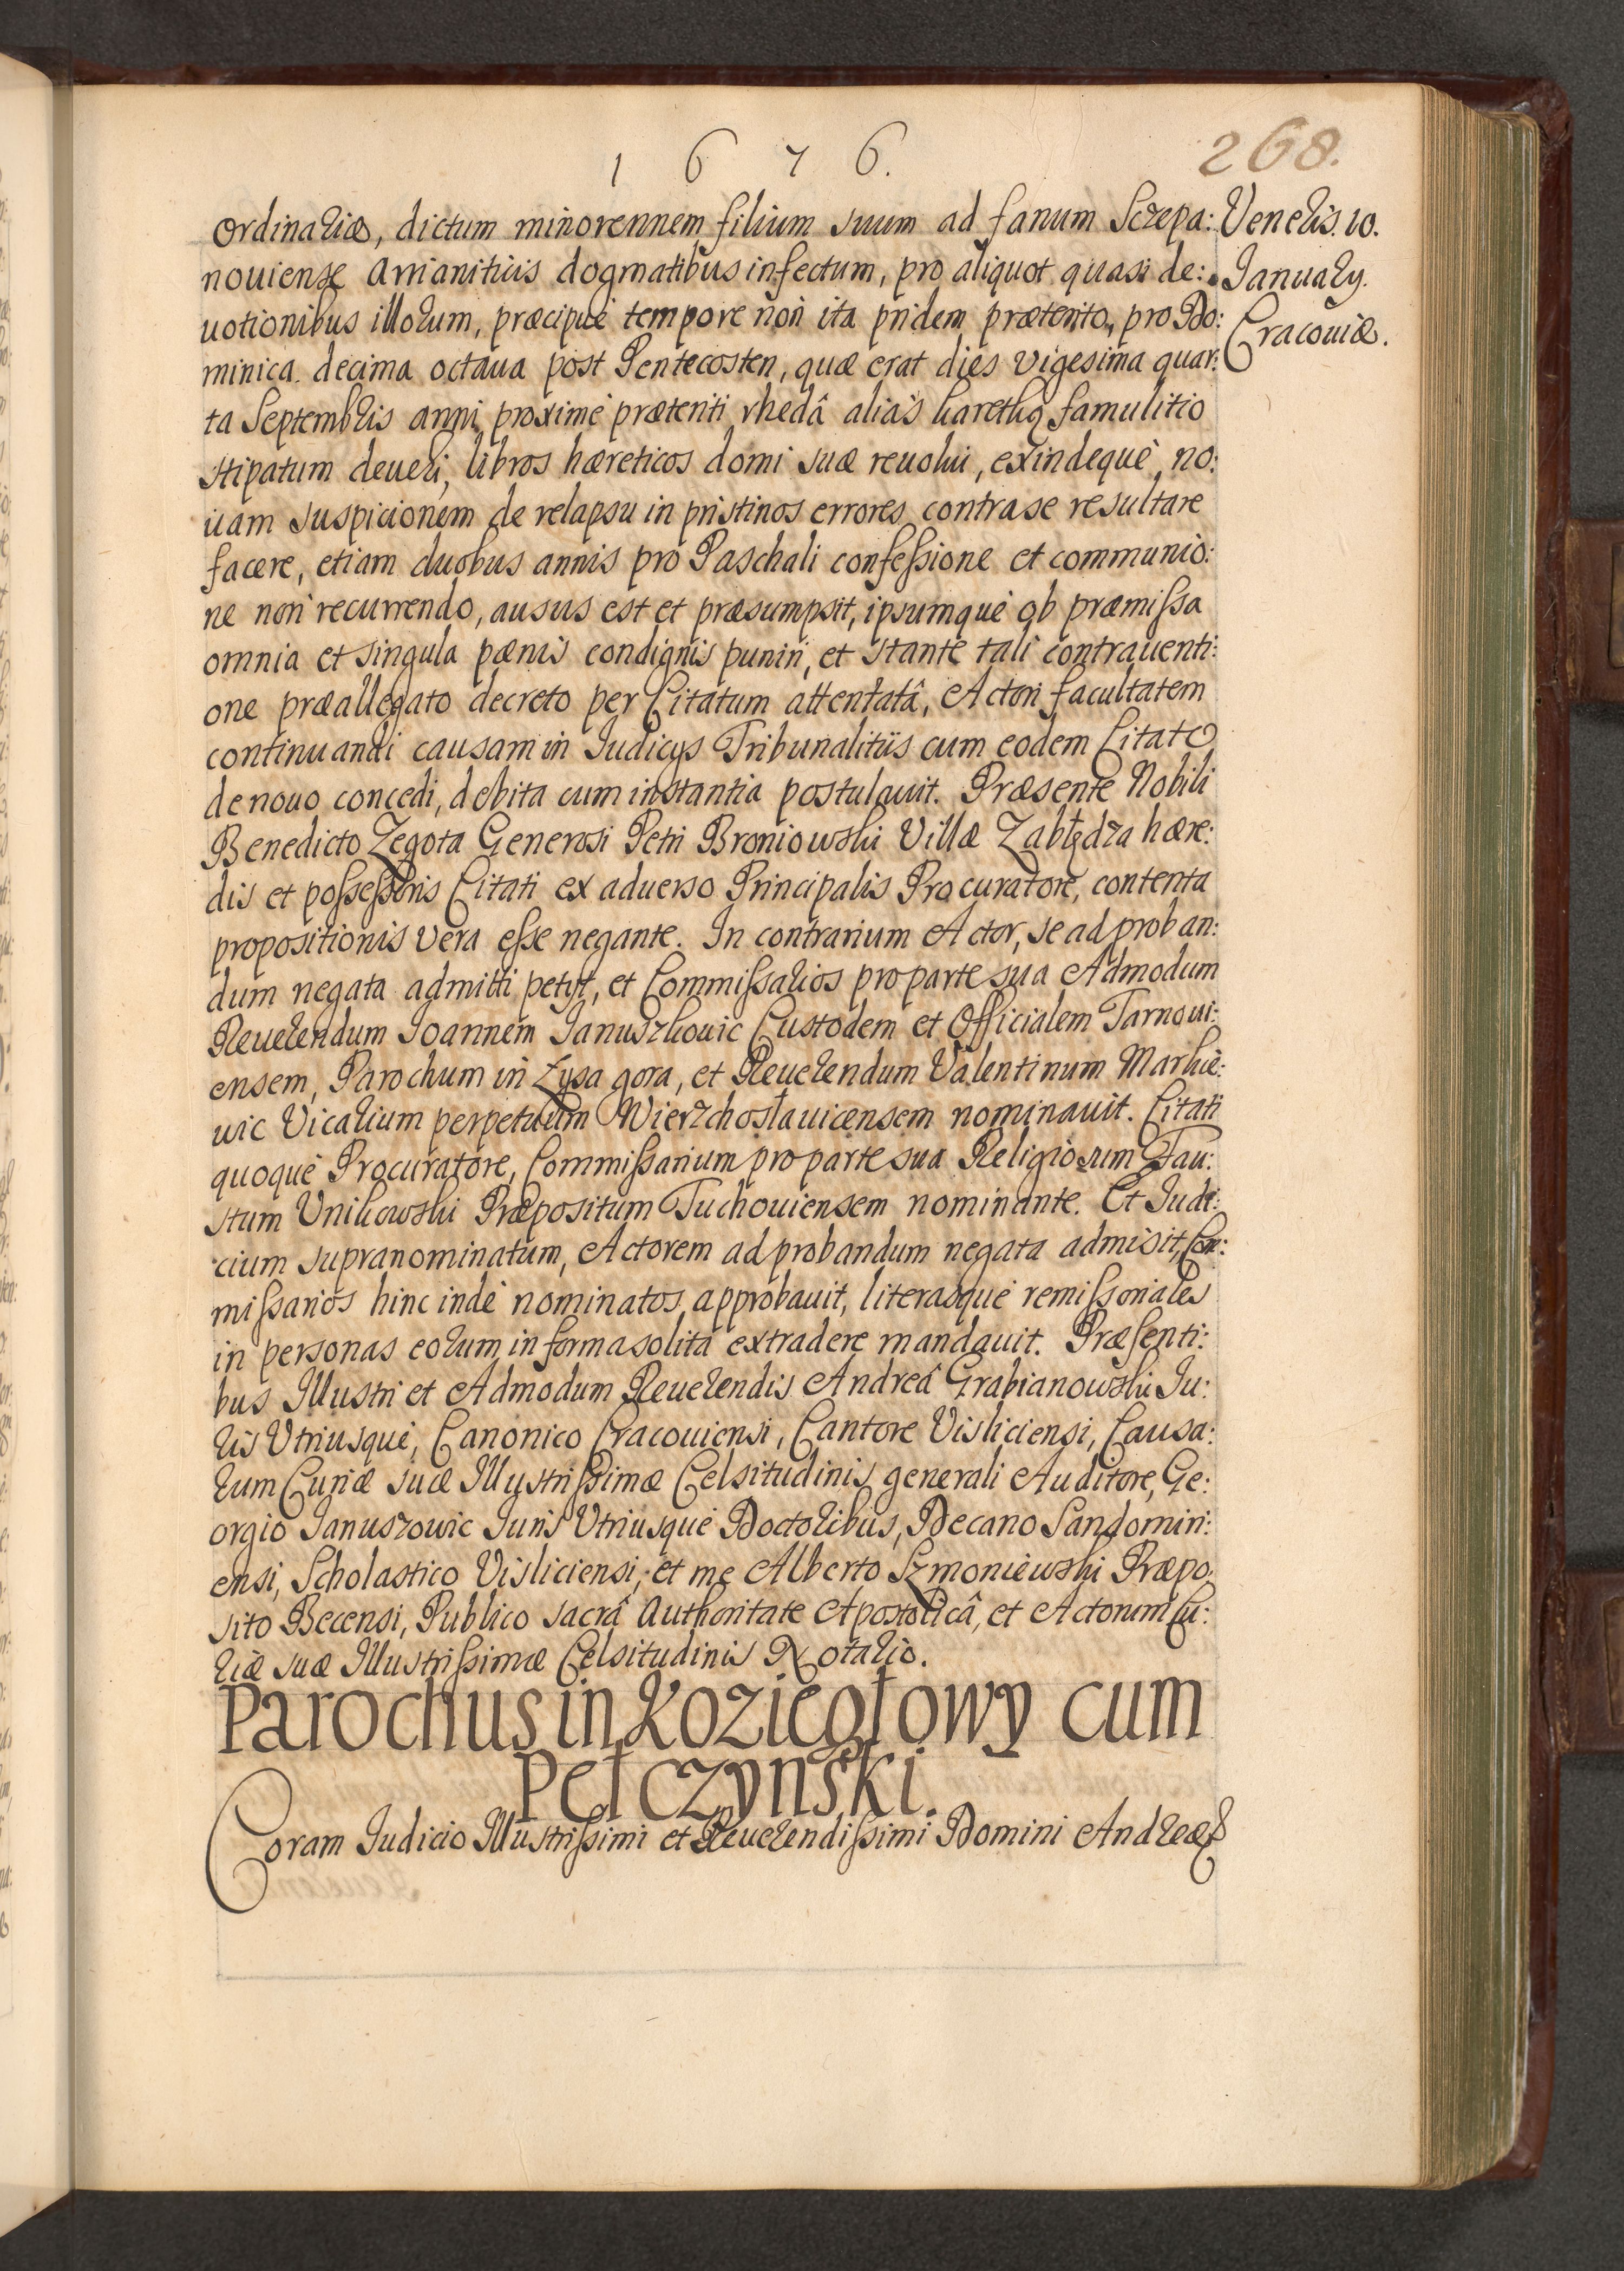 1676.
268.
Ordinariæ, dictum minorennem filium suum ad fanum Sczepa:
Veneris. 10.
nouiense Arrianiticis dogmatibus infectum, pro aliquot quasi de:
Ianuary.
uotionibus illorum, præcipuè tempore non ita pridem præterito, pro Do:
Cracouiæ.
minica decima octaua post Pentecosten, quæ erat dies vigesima quar:
ta Septembris anni proximè præteriti rhedâ aliàs karethą famulitio
stipatum deueri, libros hæreticos domi suæ reuolui, exindequè no:
uam suspicionem de relapsu in pristinos errores contra se resultare
facere, etiam duobus annis pro Paschali confessione et communio:
ne non recurrendo, ausus est et præsumpsit, ipsumquè ob præmissa
omnia et singula pænis condignis puniri, et stante tali contrauenti:
one præallegato decreto per Citatum attentatâ, Actori facultatem
continuandi causam in Iudicys Tribunalitiis cum eodem Citato
de nouo concedi, debita cum instantia postulauit. Præsente Nobili
Benedicto Zegota Generosi Petri Broniowski Villæ Zabłędza hære:
dis et possessoris Citati ex aduerso Principalis Procuratore, contenta
propositionis vera esse negante. In contrarium Actor, se ad proban:
dum negata admitti petyt, et Commissarios pro parte sua Admodum
Reuerendum Ioannem Ianuszkouic Custodem et Officialem Tarnoui:
ensem, Parochum in Łysa gora, et Reuerendum Valentinum Markie:
uic Vicarium perpetuum Wierzchosłauicensem nominauit. Citati
quoquè Procuratore, Commissarium pro parte sua Religiosum Fau:
stum Vnikowski Præpositum Tuchouiensem nominante. Et Iudi:
cium supranominatum, Actorem ad probandum negata admisit, Com:
missarios hinc inde nominatos approbauit, literasquè remissoriales
in personas eorum in forma solita extradere mandauit. Præsenti:
bus Illustri et Admodum Reuerendis Andreâ Grabianowski Iu:
ris Vtriusquè, Canonico Cracouiensi, Cantore Visliciensi, Causa:
rum Curiæ suæ Illustrissimæ Celsitudinis generali Auditore, Ge:
orgio Ianuszowic Iuris Vtriusquè Doctoribus, Decano Sandomiri:
ensi, Scholastico Visliciensi, et me Alberto Szmoniewski Præpo:
sito Becensi, Publico sacrâ Authoritate Apostolicâ, et Actorum Cu:
riæ suæ Illustrissimæ Celsitudinis Notario.
Parochus in Koziegłowy cum
Pełczynski.
Coram Iudicio Illustrissimi et Reuerendissimi Domini Andreæ